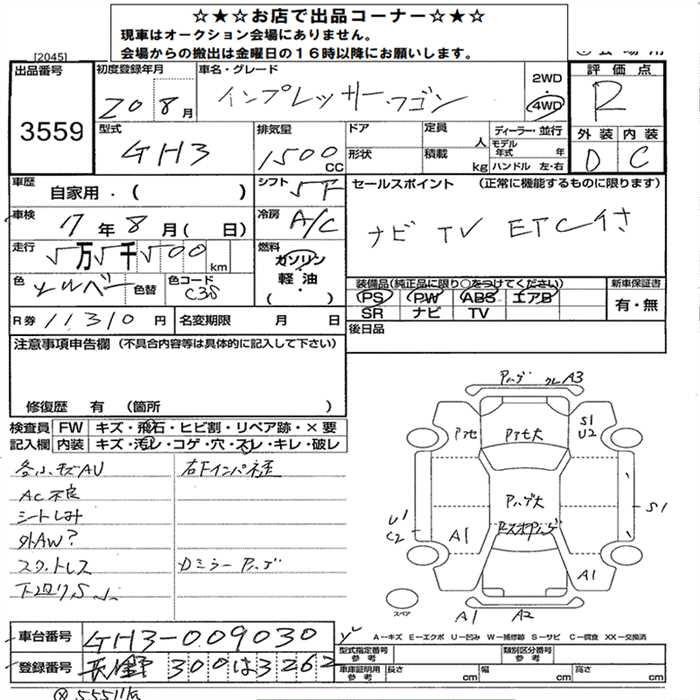 ☆★☆お店で出品コーナー☆★☆
現車はオークション会場にありません。
会場からの搬出は金曜日の16時以降にお願いします。
[2045]
出品番号
3559
初度登録年月
20 8月
車名・グレード
インプレッサー・ワゴン
2WD
4WD
評価点
R
外装 内装
D C
型式
GH3
排気量
1500 CC
ドア
形状
定員 人
積載 kg
ディーラー・並行
モデル年式 年
ハンドル 左・右
車歴
自家用・( )
シフト
5F
セールスポイント (正常に機能するものに限ります)
ナビ TV ETC付き
車検
17年8月( 日)
冷房
A/C
走行
5万5千500km
燃料
ガソリン
軽油
( )
色
シルバー
色替
色コード
装備品(純正品に限り○をつけてください)
PS PW ABS エアB
SR ナビ TV
新車保証書
有・無
R券 11,310円
名変期限 月 日
後日品
注意事項申告欄 (不具合内容等は具体的に記入して下さい)
修復歴 有 (箇所 )
検査員記入欄
FW キズ・飛石・ヒビ割・リペア跡・×要
内装 キズ・汚レ・コゲ・穴・スレ・キレ・破レ
AC不良
シートしみ
外AW?
スタットレス
下廻りS
右Fインパネ
ドミラー
A3
S1
U2
U1
C2
A1
S1
A1
A1
A2
スペア
A―キズ E―エクボ U―凹み W―補修跡 S―サビ C―腐食 XX―交換済
車台番号
GH3-009030
登録番号
長野 300は3262
型式指定番号 参考
類別区分番号 参考
車庫証明用 参考
長さ cm 幅 cm 高さ cm